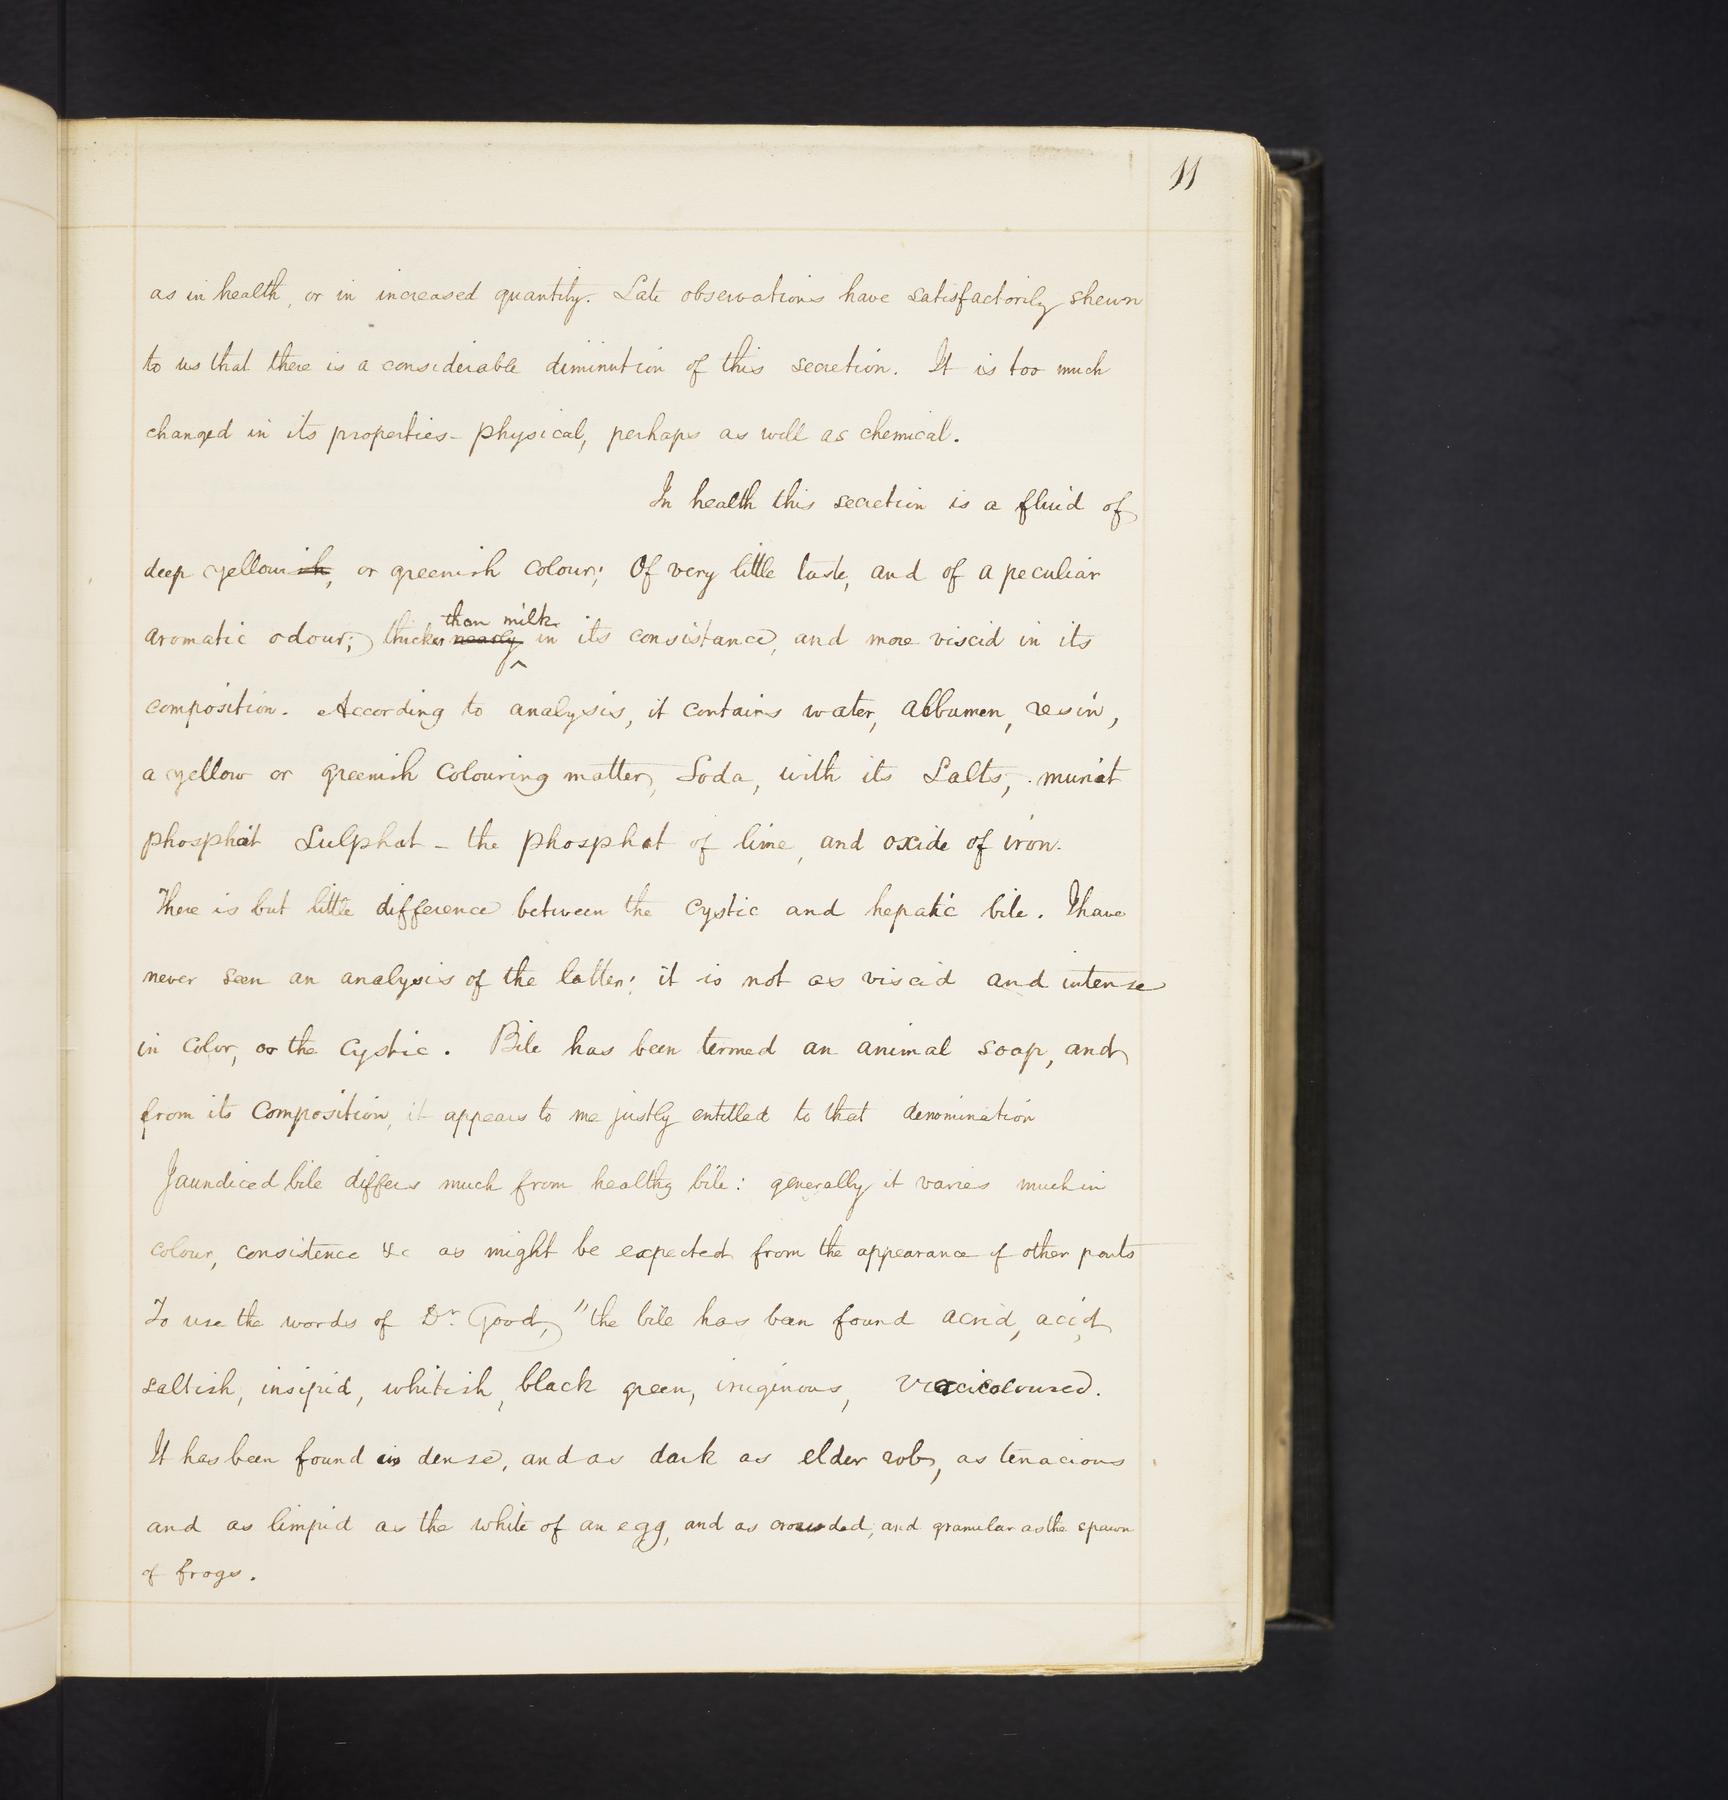 11
as in health, or in increased quantity. Late observations have satisfactorily shewn
to us that there is a considerable diminution of this secretion. It is too much
changed in its properties - physical, perhaps as well as chemical.
In health this secretion is a fluid of
deep yellowish, or greenish colour; Of very little taste, and of a peculiar
than milk
aromatic odour; thicker nearly in its consistance, and more viscid in its
composition. According to analysis, it contains water, albumen, resin,
a yellow or greenish colouring matter, Soda, with its Salts, muriat
phosphat Sulphat - the phosphat of lime, and oxide of iron.
There is but little difference between the cystic and hepatic bile. I have
never seen an analysis of the latter; it is not as viscid and intense
in color, as the Cystic. Bile has been termed an animal soap, and
from its composition, it appears to me justly entitled to that denomination
Jaundiced bile differs much from healthy bile: generally it varies much in
colour, consistence &c as might be expected from the appearance of other parts
To use the words of Dr. Good, "the bile has been found acrid, acid,
saltish, insipid, whitish, black green, iruginous,
It has been found as dense, and as dark as elder rob, as tenacious
and as limpid as the white of an egg, and as crowded, and granular as the spawn
of frogs.